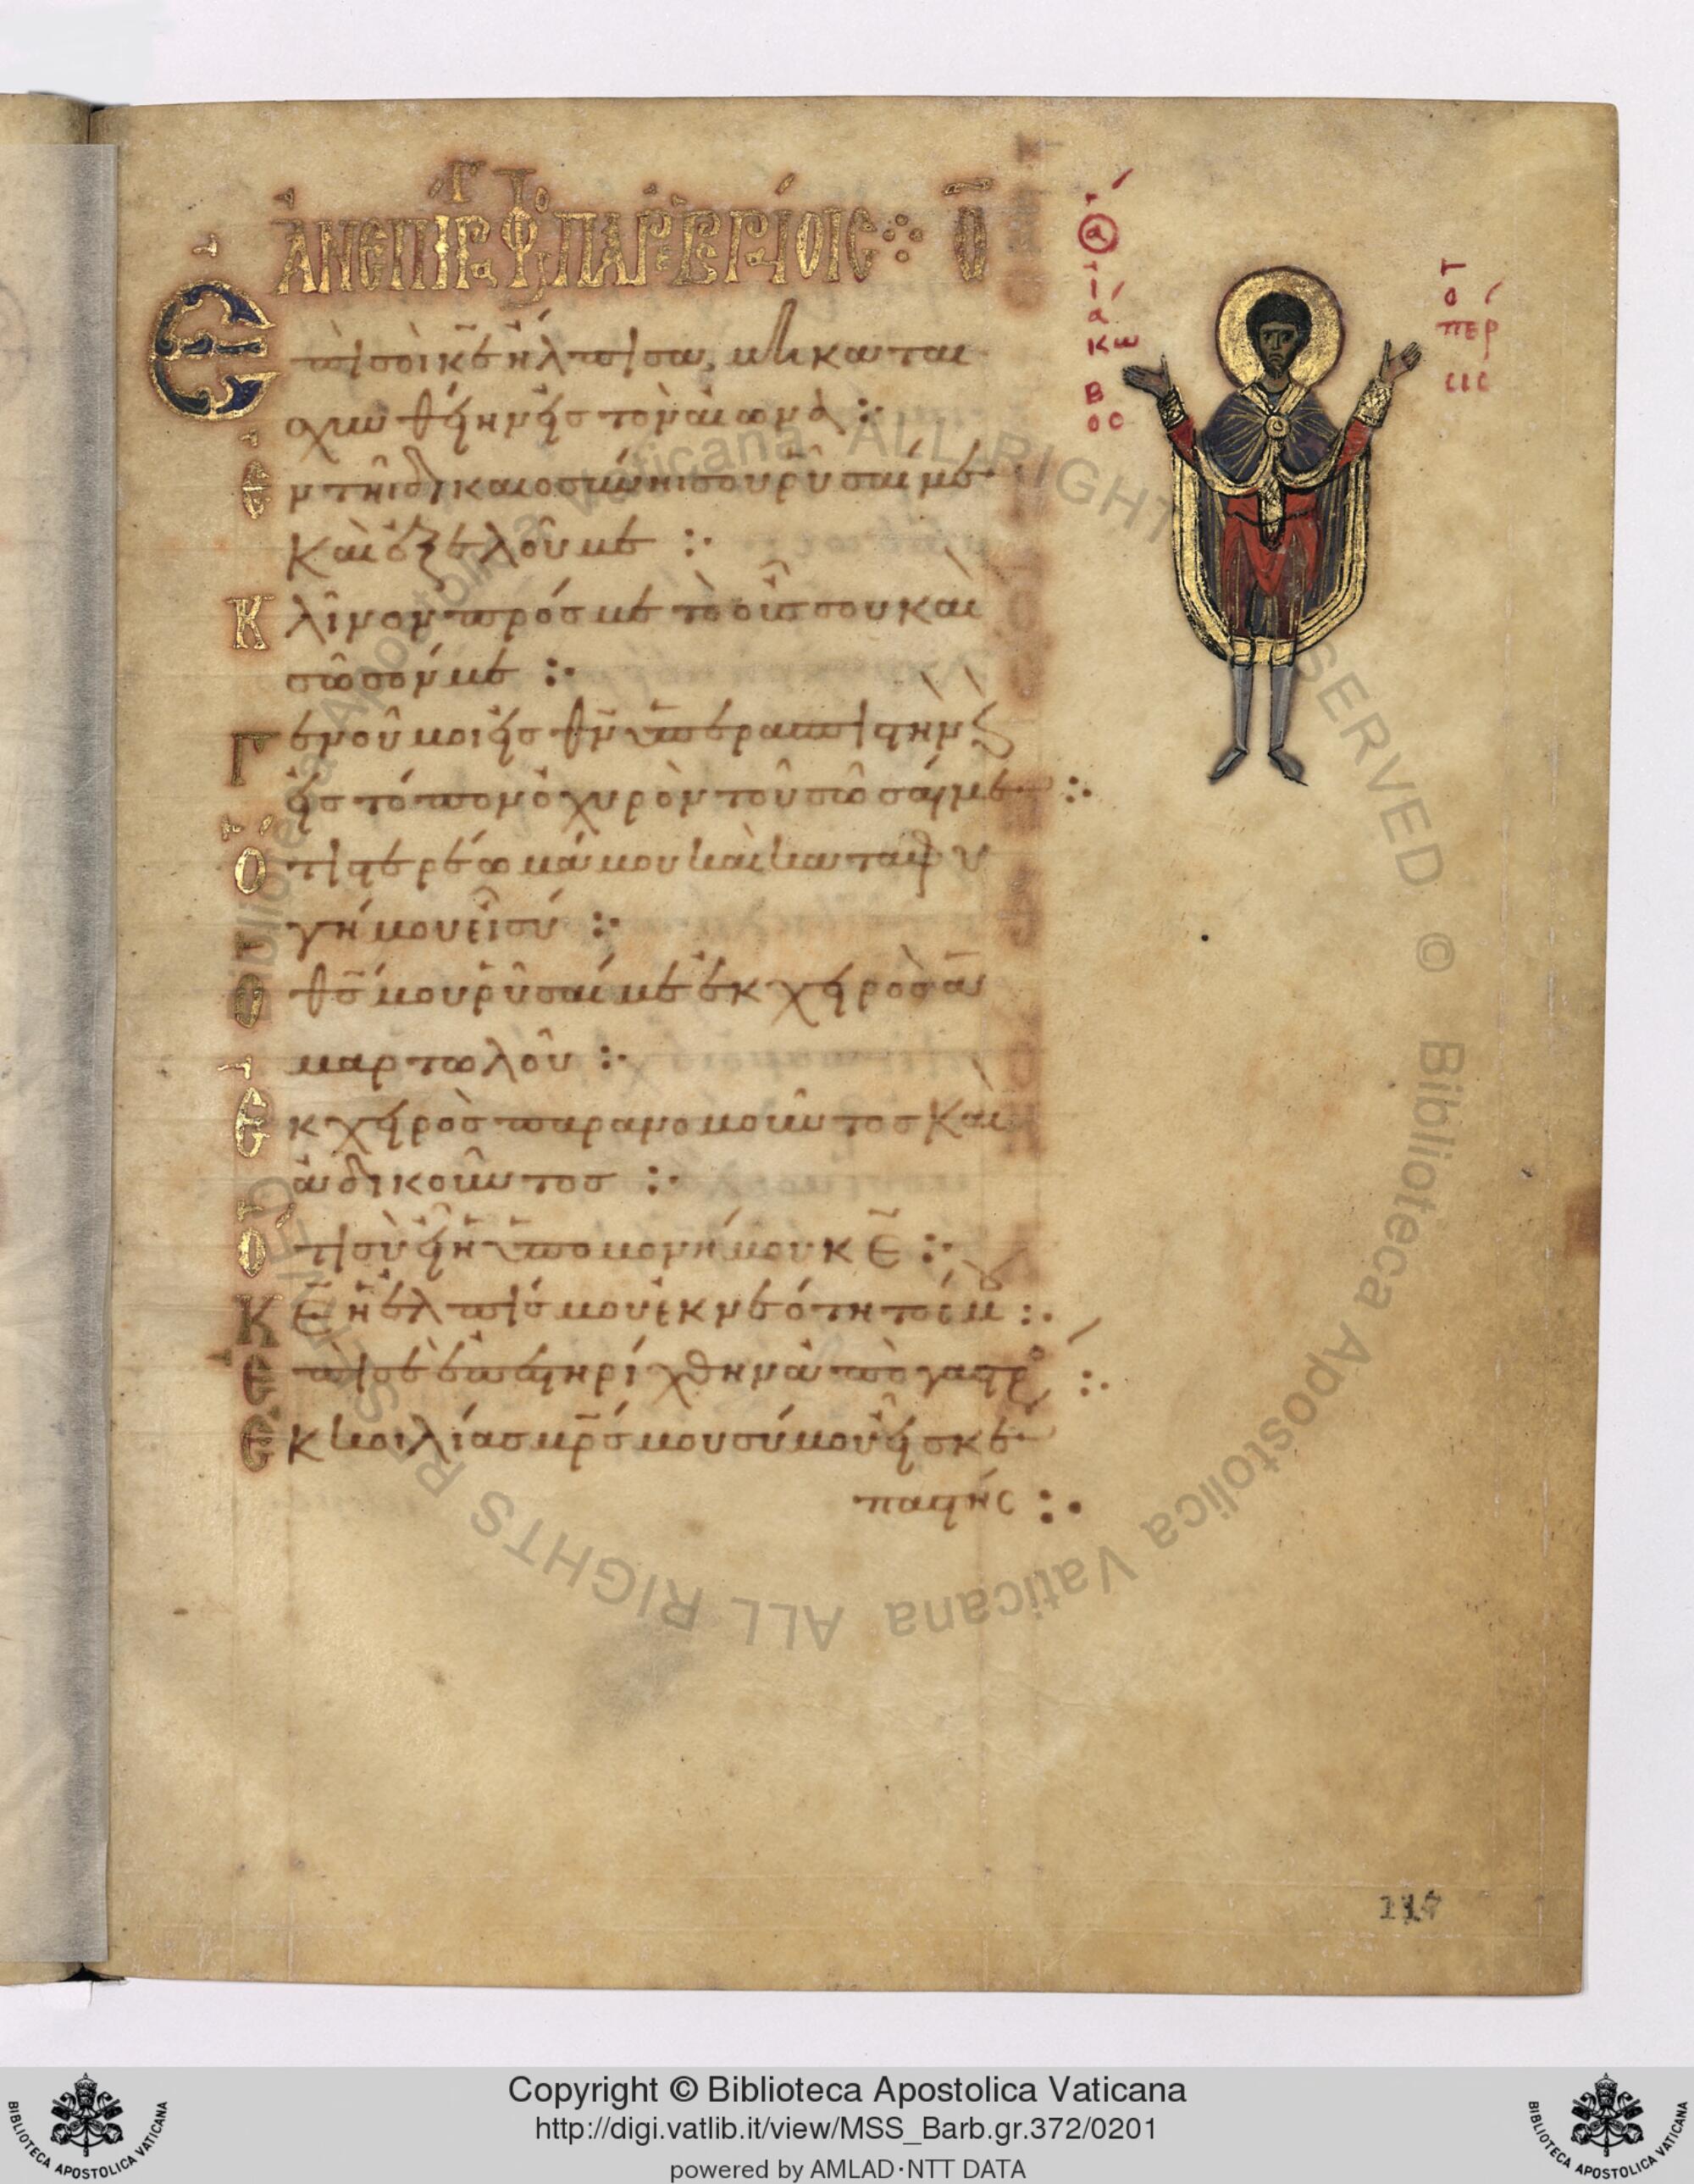 ἀνεπίγραφος παρ' ἑβραίοις ο̅
Ἐπὶ σοὶ κ̅ε ἤλπισα, μὴ καται
σχυνθείην εἰς τὸν αἰῶνα :·
Ἐν τῆι δικαιοσύνηι σου ῥῦσαί με·
καὶ ἐξελοῦ με :·
Κλῖνον πρός με τὸ οὖς σου καὶ
σῶσόν με :·
Γενοῦ μοι εἰς θ̅ν ὑπερασπιστὴν ϗ
εἰς τόπον ὀχυρὸν τοῦ σῶσαί με :·
Ὅτι στερέωμά μου καὶ καταφυ
γή μου εἶ σύ :·
Ὁ θ̅ς μου ῥῦσαί με ἐκ χειρὸς ἁ
μαρτωλοῦ :·
Ἐκ χειρὸς παρανομοῦντος καὶ
ἀδικοῦντος :·
Ὅτι σὺ εἶ ἡ ὑπομονή μου κ̅ε :·
Κ̅ε ἡ ἐλπίς μου ἐκ νεότητός μ :·
Ἐπὶ σὲ ἐπεστηρίχθην ἀπὸ γαστρο :·
Ἐκ κοιλίας μ̅ρ̅ς μου σύ μου εἶ σκε
παστής :·
ὁ ἅ
ἰάκωβος
ὁ πέρσις
117
Biblioteca Apostolica Vaticana ALL RIGHTS RESERVED © Biblioteca Apostolica Vaticana ALL RIGHTS RESERVED ©
Copyright © Biblioteca Apostolica Vaticana
http://digi.vatlib.it/view/MSS_Barb.gr.372/0201
powered by AMLAD·NTT DATA
BIBLIOTECA APOSTOLICA VATICANA
BIBLIOTECA APOSTOLICA VATICANA